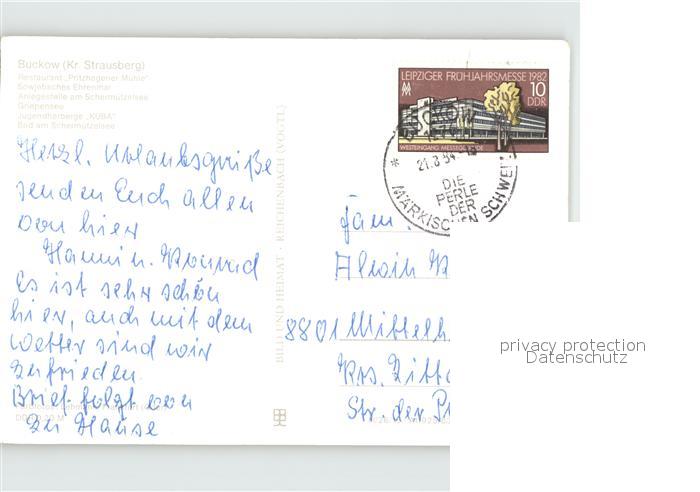 Buckow (Kr. Strausberg)
Restaurant „Pritzhagener Mühle"
Sowjetisches Ehrenmal
Anlegestelle am Schermützelsee
Griepensee
Jugendherberge „KUBA"
Bad am Schermützelsee
LEIPZIGER FRÜHJAHRSMESSE 1982
10
DDR
WESTEINGANG MESSEGELÄNDE
BUCKOW
21.8.84
DIE
PERLE
DER
MÄRKISCHEN SCHWEIZ
Herzl. Urlaubsgrüße
senden Euch allen
von hier
Hanni u. Konrad
Es ist sehr schön
hier, auch mit dem
Wetter sind wir
zufrieden.
Brief folgt von
zu Hause
BILD UND HEIMAT · REICHENBACH (VOGTL)
Fam.
8801 Mittelh
Krs. Zitta
Str. der
privacy protection
Datenschutz